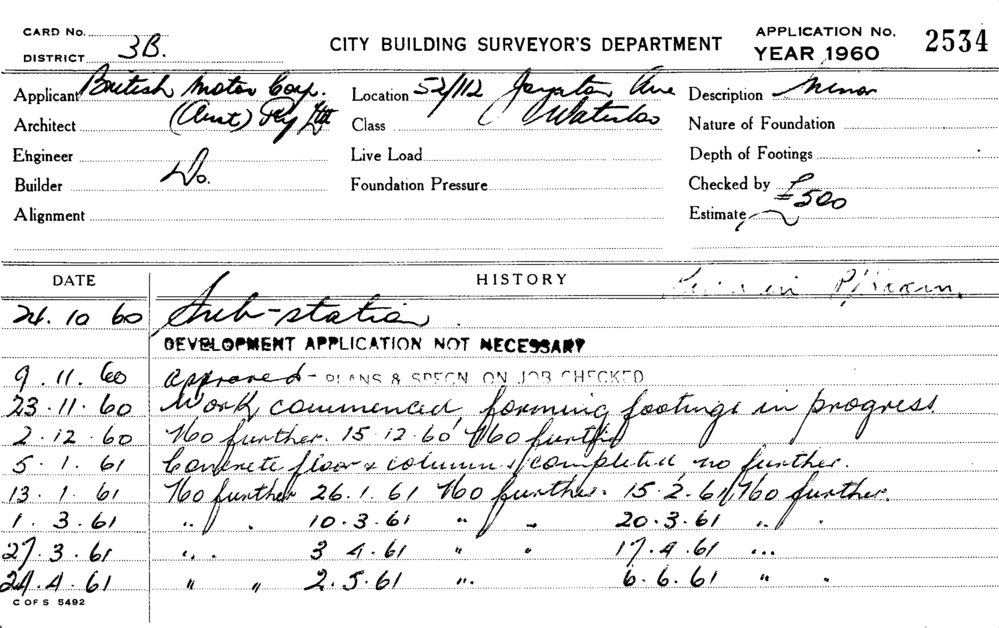 CARD No.
DISTRICT 3B.
CITY BUILDING SURVEYOR'S DEPARTMENT
APPLICATION No. 2534
YEAR 1960
Applicant British Motor Corp. (Aust) Pty Ltd
Location 52/112 Joynton Ave Waterloo
Description Minor
Architect
Class
Nature of Foundation
Engineer
Live Load
Depth of Footings
Builder Do.
Foundation Pressure
Checked by
Alignment
Estimate £500
DATE HISTORY
24. 10 60 Sub-station
DEVELOPMENT APPLICATION NOT NECESSARY
9. 11. 60 approved - PLANS & SPECN. ON JOB CHECKED
23. 11. 60 Work commenced forming footings in progress
2. 12. 60 No further. 15. 12. 60 No further
5. 1. 61 Concrete floor & columns completed, no further.
13. 1. 61 No further 26. 1. 61 No further. 15. 2. 61 No further.
1. 3. 61 " " 10. 3. 61 " " 20. 3. 61 " "
27. 3. 61 " " 3 4. 61 " " 17. 4. 61 " "
24. 4. 61 " " 2. 5. 61 " " 6. 6. 61 " "
C OF S 5492